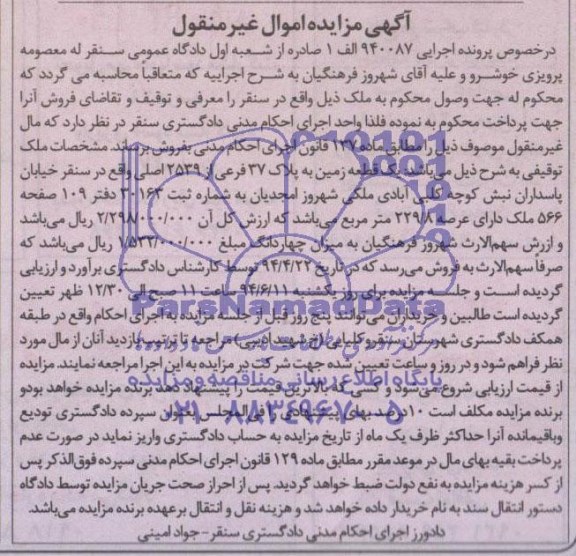 آگهی مزایده اموال غیر منقول
درخصوص پرونده اجرایی ۹۴۰۰۸۷ الف ۱ صادره از شعبه اول دادگاه عمومی سنقر له معصومه
پرویزی خوشرو و علیه آقای شهروز فرهنگیان به شرح اجراییه که متعاقباً محاسبه می گردد که
محکوم له جهت وصول محکوم به ملک ذیل واقع در سنقر را معرفی و توقیف و تقاضای فروش آنرا
جهت پرداخت محکوم به نموده فلذا واحد اجرای احکام مدنی دادگستری سنقر در نظر دارد که مال
غیرمنقول موصوف ذیل را مطابق ماده ۱۳۷ قانون اجرای احکام مدنی بفروش برساند. مشخصات ملک
توقیفی به شرح ذیل می‌باشد: یک قطعه زمین به پلاک ۳۷ فرعی از ۲۵۳۹ اصلی واقع در سنقر خیابان
پاسداران نبش کوچه گلابی آبادی ملکی شهروز امجدیان به شماره ثبت ۳۰۱۶۳ دفتر ۱۰۹ صفحه
۵۶۶ ملک دارای عرصه ۲۲۹/۸ متر مربع می‌باشد که ارزش کل آن ۲/۲۹۸۰۰۰/۰۰۰ ریال می‌باشد
و ارزش سهم‌الارث شهروز فرهنگیان به میزان چهاردانگ مبلغ ۱/۵۳۲/۰۰۰/۰۰۰ ریال می‌باشد که
صرفاً سهم‌الارث به فروش می‌رسد که در تاریخ ۹۴/۴/۲۲ توسط کارشناس دادگستری برآورد و ارزیابی
گردیده است و جلسه مزایده برای روز یکشنبه ۹۴/۶/۱۱ ساعت ۱۱ صبح الی ۱۲/۳۰ ظهر تعیین
گردیده است طالبین و خریداران می‌توانند پنج روز قبل از جلسه مزایده به اجرای احکام واقع در طبقه
همکف دادگستری شهرستان سنقر و کلیایی (خ شهید ادبی) مراجعه تا ترتیب بازدید آنان از مال مورد
نظر فراهم شود و در روز و ساعت تعیین شده جهت شرکت در مزایده به این اجرا مراجعه نمایند. مزایده
از قیمت ارزیابی شروع می‌شود و کسی که بالاترین قیمت را پیشنهاد دهد برنده مزایده خواهد بود و
برنده مزایده مکلف است ۱۰ درصد بهای پیشنهادی را فی‌المجلس بعنوان سپرده دادگستری تودیع
وباقیمانده آنرا حداکثر ظرف یک ماه از تاریخ مزایده به حساب دادگستری واریز نماید در صورت عدم
پرداخت بقیه بهای مال در موعد مقرر مطابق ماده ۱۲۹ قانون اجرای احکام مدنی سپرده فوق‌الذکر پس
از کسر هزینه مزایده به نفع دولت ضبط خواهد گردید. پس از احراز صحت جریان مزایده توسط دادگاه
دستور انتقال سند به نام خریدار داده خواهد شد و هزینه نقل و انتقال برعهده برنده مزایده می‌باشد.
دادورز اجرای احکام مدنی دادگستری سنقر-جواد امینی
ParsNamadData
پایگاه اطلاع رسانی مناقصه و مزایده
۰۲۱-۸۸۳۴۹۶۷۰-۵